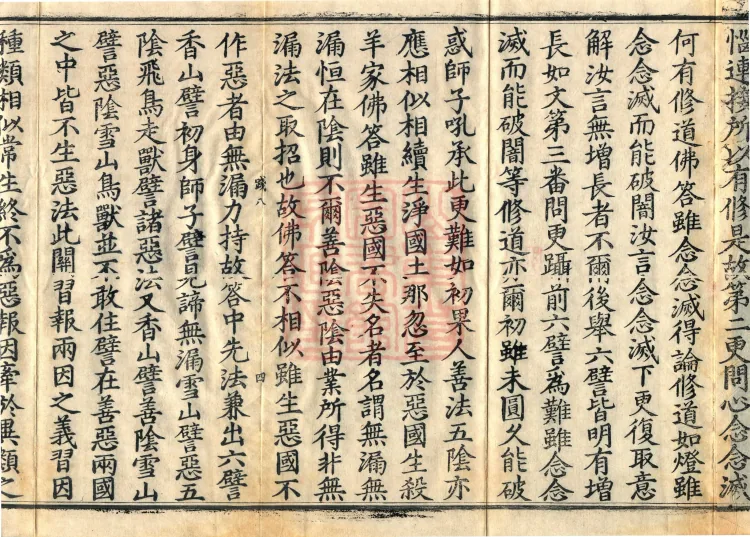 惱連接所以有修是故第二更問心念念滅
何有修道佛答雖念念滅得論修道如燈雖
念念滅而能破闇汝言念念滅下更復取意
解汝言無增長者不爾後舉六譬皆明有增
長如文第三番問更躡前六譬爲難雖念念
滅而能破闇等修道亦爾初雖未圓久能破
惑師子吼承此更難如初果人善法五陰亦
應相似相續生淨國土那忽至於惡國生殺
羊家佛答雖生惡國不失名者名謂無漏無
漏恒在陰則不爾善陰惡陰由業所得非無
漏法之取招也故佛答不相似雖生惡國不
踐八
四
作惡者由無漏力持故答中先法兼出六譬
香山譬初身師子譬見諦無漏雪山譬惡五
陰飛鳥走獸譬諸惡法又香山譬善陰雪山
譬惡陰雪山鳥獸並不敢住譬在善惡兩國
之中皆不生惡法此關習報兩因之義習因
種類相似常生終不爲惡報因牽於異類之